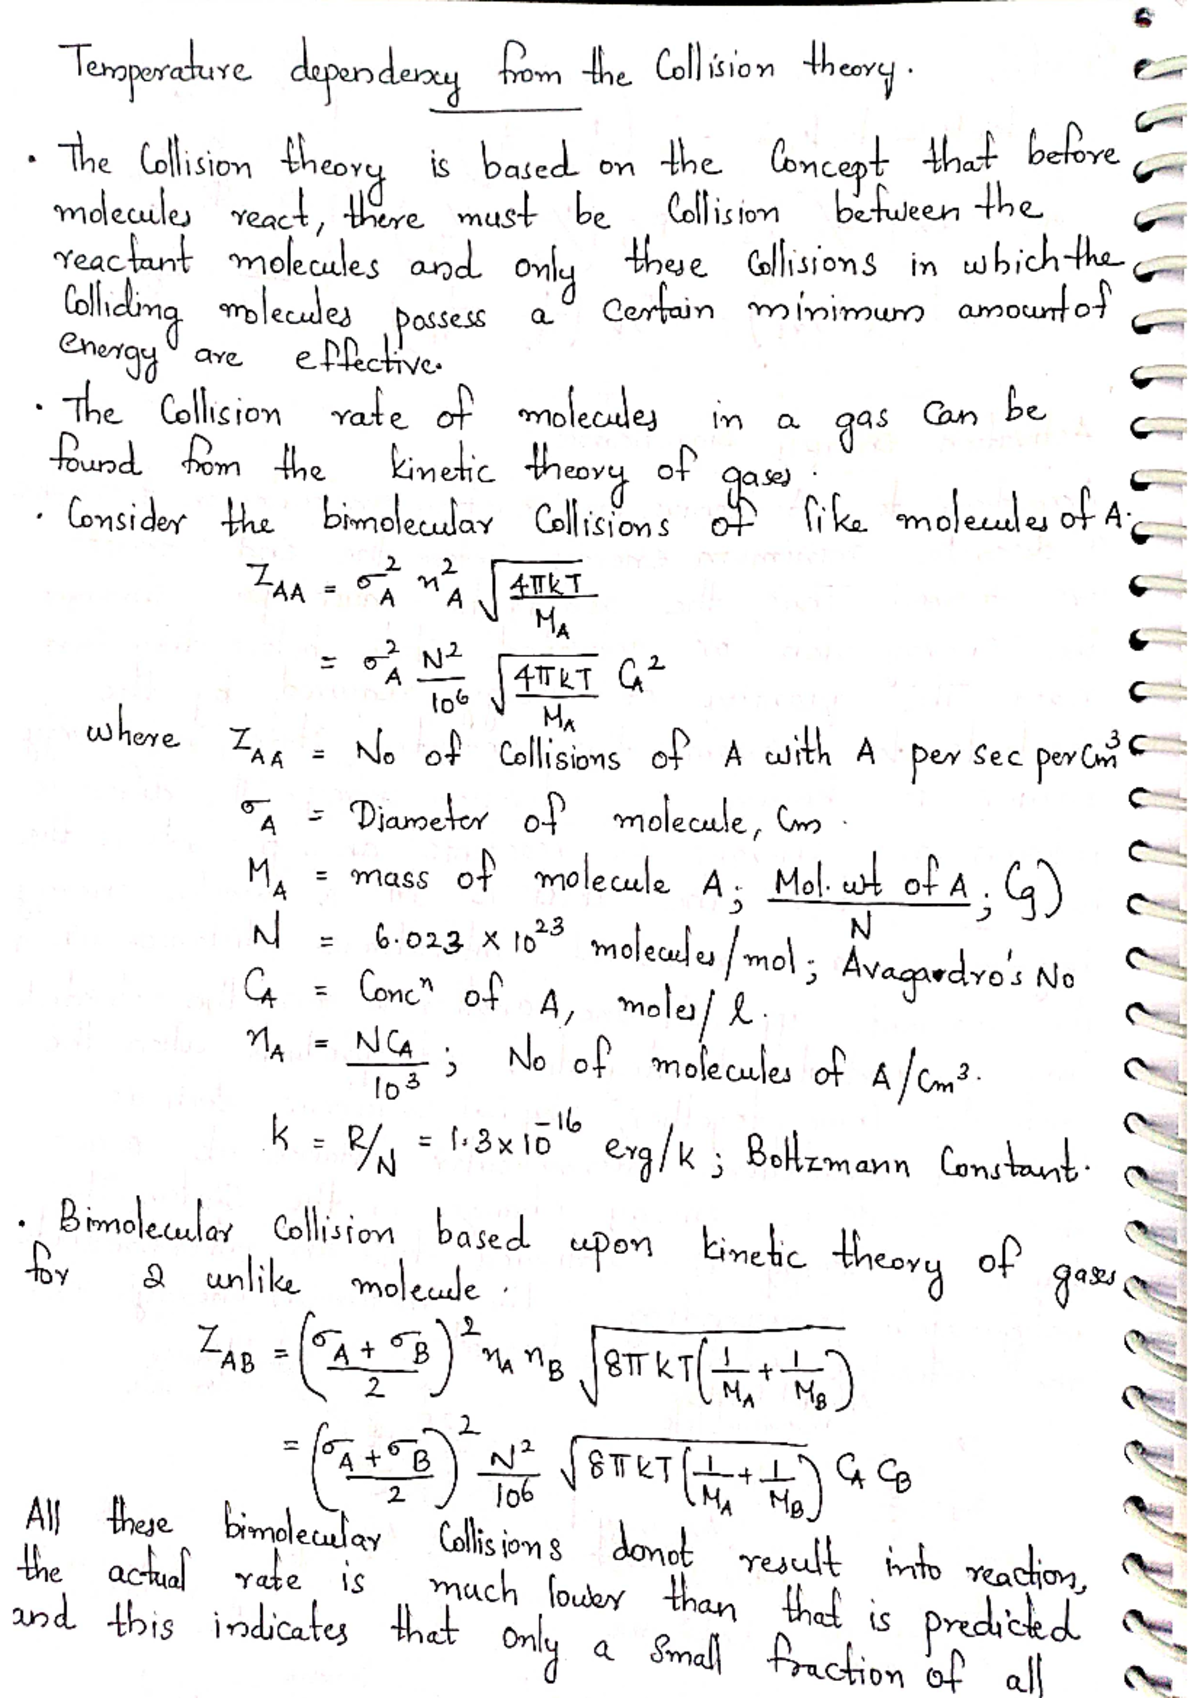 Temperature dependency from the Collision theory.
• The Collision theory is based on the Concept that before
molecules react, there must be Collision between the
reactant molecules and only these Collisions in which the
Colliding molecules possess a certain minimum amount of
energy are effective.
• The Collision rate of molecules in a gas can be
found from the kinetic theory of gases.
• Consider the bimolecular Collisions of like molecules of A.
Z_AA = σ_A² n_A² √(4πkT/M_A)
= σ_A² N²/10⁶ √(4πkT/M_A) C_A²
where Z_AA = No of Collisions of A with A per sec per Cm³
σ_A = Diameter of molecule, Cm.
M_A = mass of molecule A; Mol. wt of A/N; (g)
N = 6.023 × 10²³ molecules/mol; Avagardro's No
C_A = Concⁿ of A, moles/l.
n_A = NC_A/10³; No of molecules of A/Cm³.
k = R/N = 1.3×10⁻¹⁶ erg/k; Boltzmann Constant.
• Bimolecular Collision based upon kinetic theory of gases
for 2 unlike molecule.
Z_AB = ((σ_A + σ_B)/2)² n_A n_B √(8πkT(1/M_A + 1/M_B))
= ((σ_A + σ_B)/2)² N²/10⁶ √(8πkT(1/M_A + 1/M_B)) C_A C_B
All these bimolecular Collisions donot result into reaction,
the actual rate is much lower than that is predicted
and this indicates that only a small fraction of all